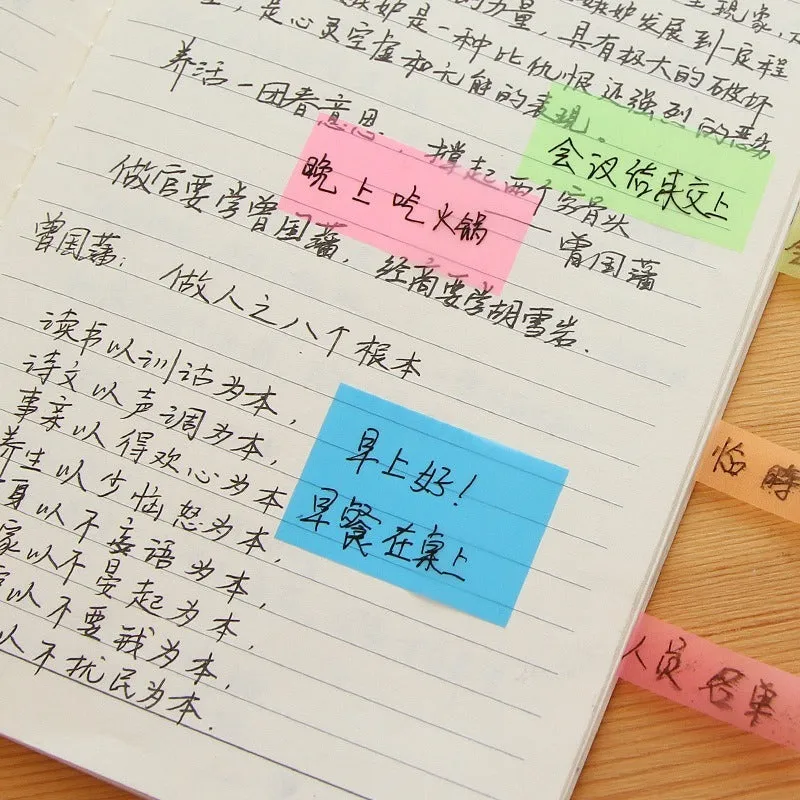 现象,
嫉妒发展到一定程
的力量,具有极大的破坏
嫉妒是一种比仇恨还强烈的恶劣
是心灵空虚和无能的表现。
养活一团春意思,撑起两个穷骨头
——曾国藩
会议结束交上
晚上吃火锅
做官要学曾国藩,经商要学胡雪岩.
曾国藩:做人之八个根本
读书以训诂为本,
诗文以声调为本,
事亲以得欢心为本,
养生以少恼怒为本,
身以不妄语为本,
家以不晏起为本,
以不要钱为本,
以不扰民为本.
早上好!
早餐在桌上
临时
人员名单